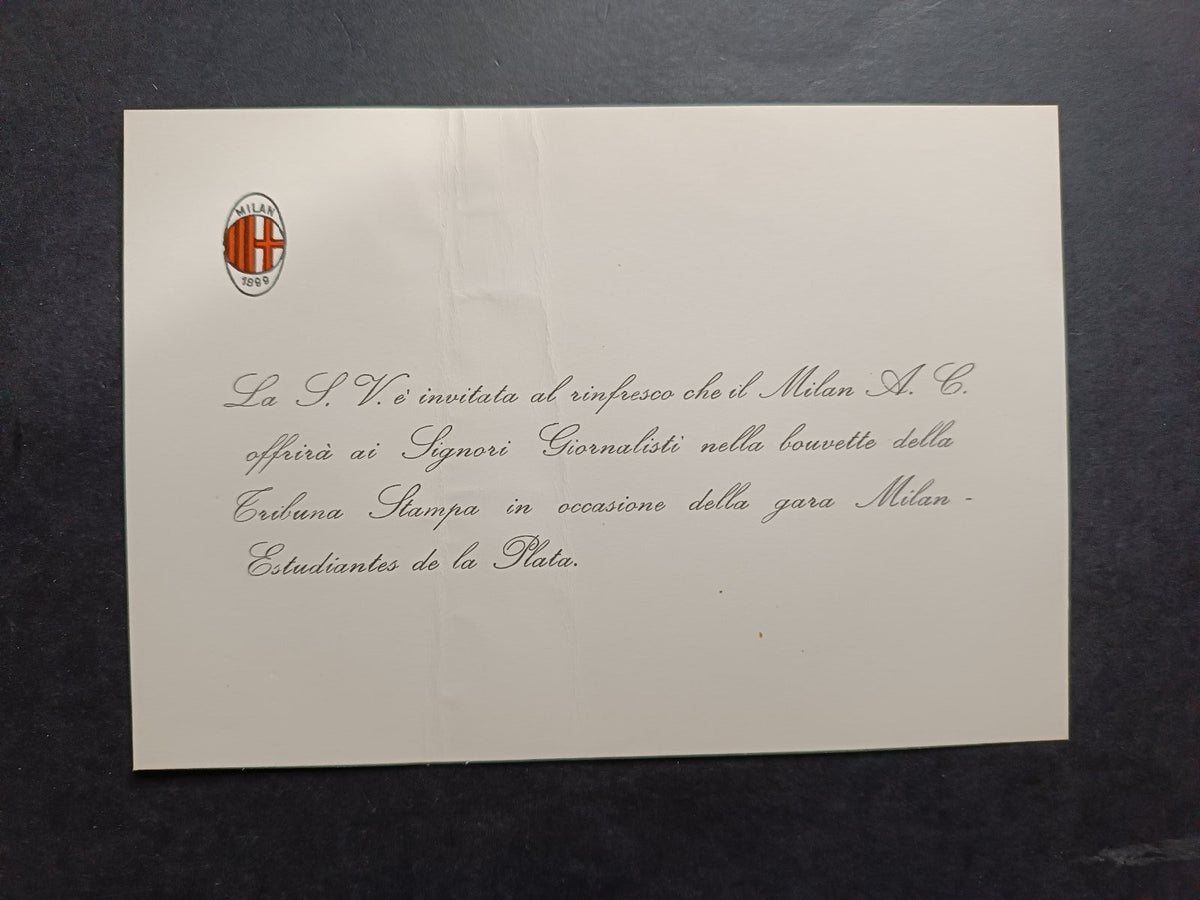 MILAN
1899
La S. V. è invitata al rinfresco che il Milan A. C.
offrirà ai Signori Giornalisti nella bouvette della
Tribuna Stampa in occasione della gara Milan -
Estudiantes de la Plata.